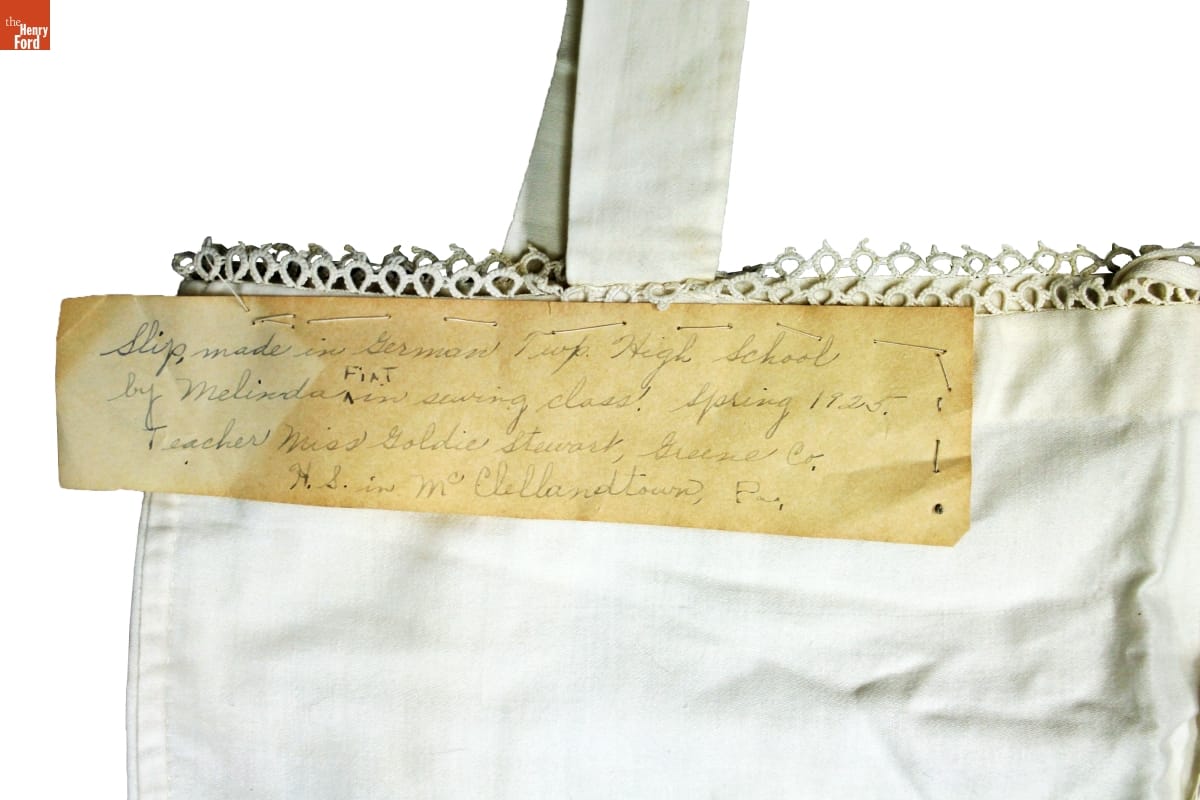 the
Henry
Ford
Slip, made in German Twp. High School
by Melinda ^ FIAT in sewing class. Spring 1925.
Teacher Miss Goldie Stewart, Greene Co.
H. S. in McClellandtown, Pa.